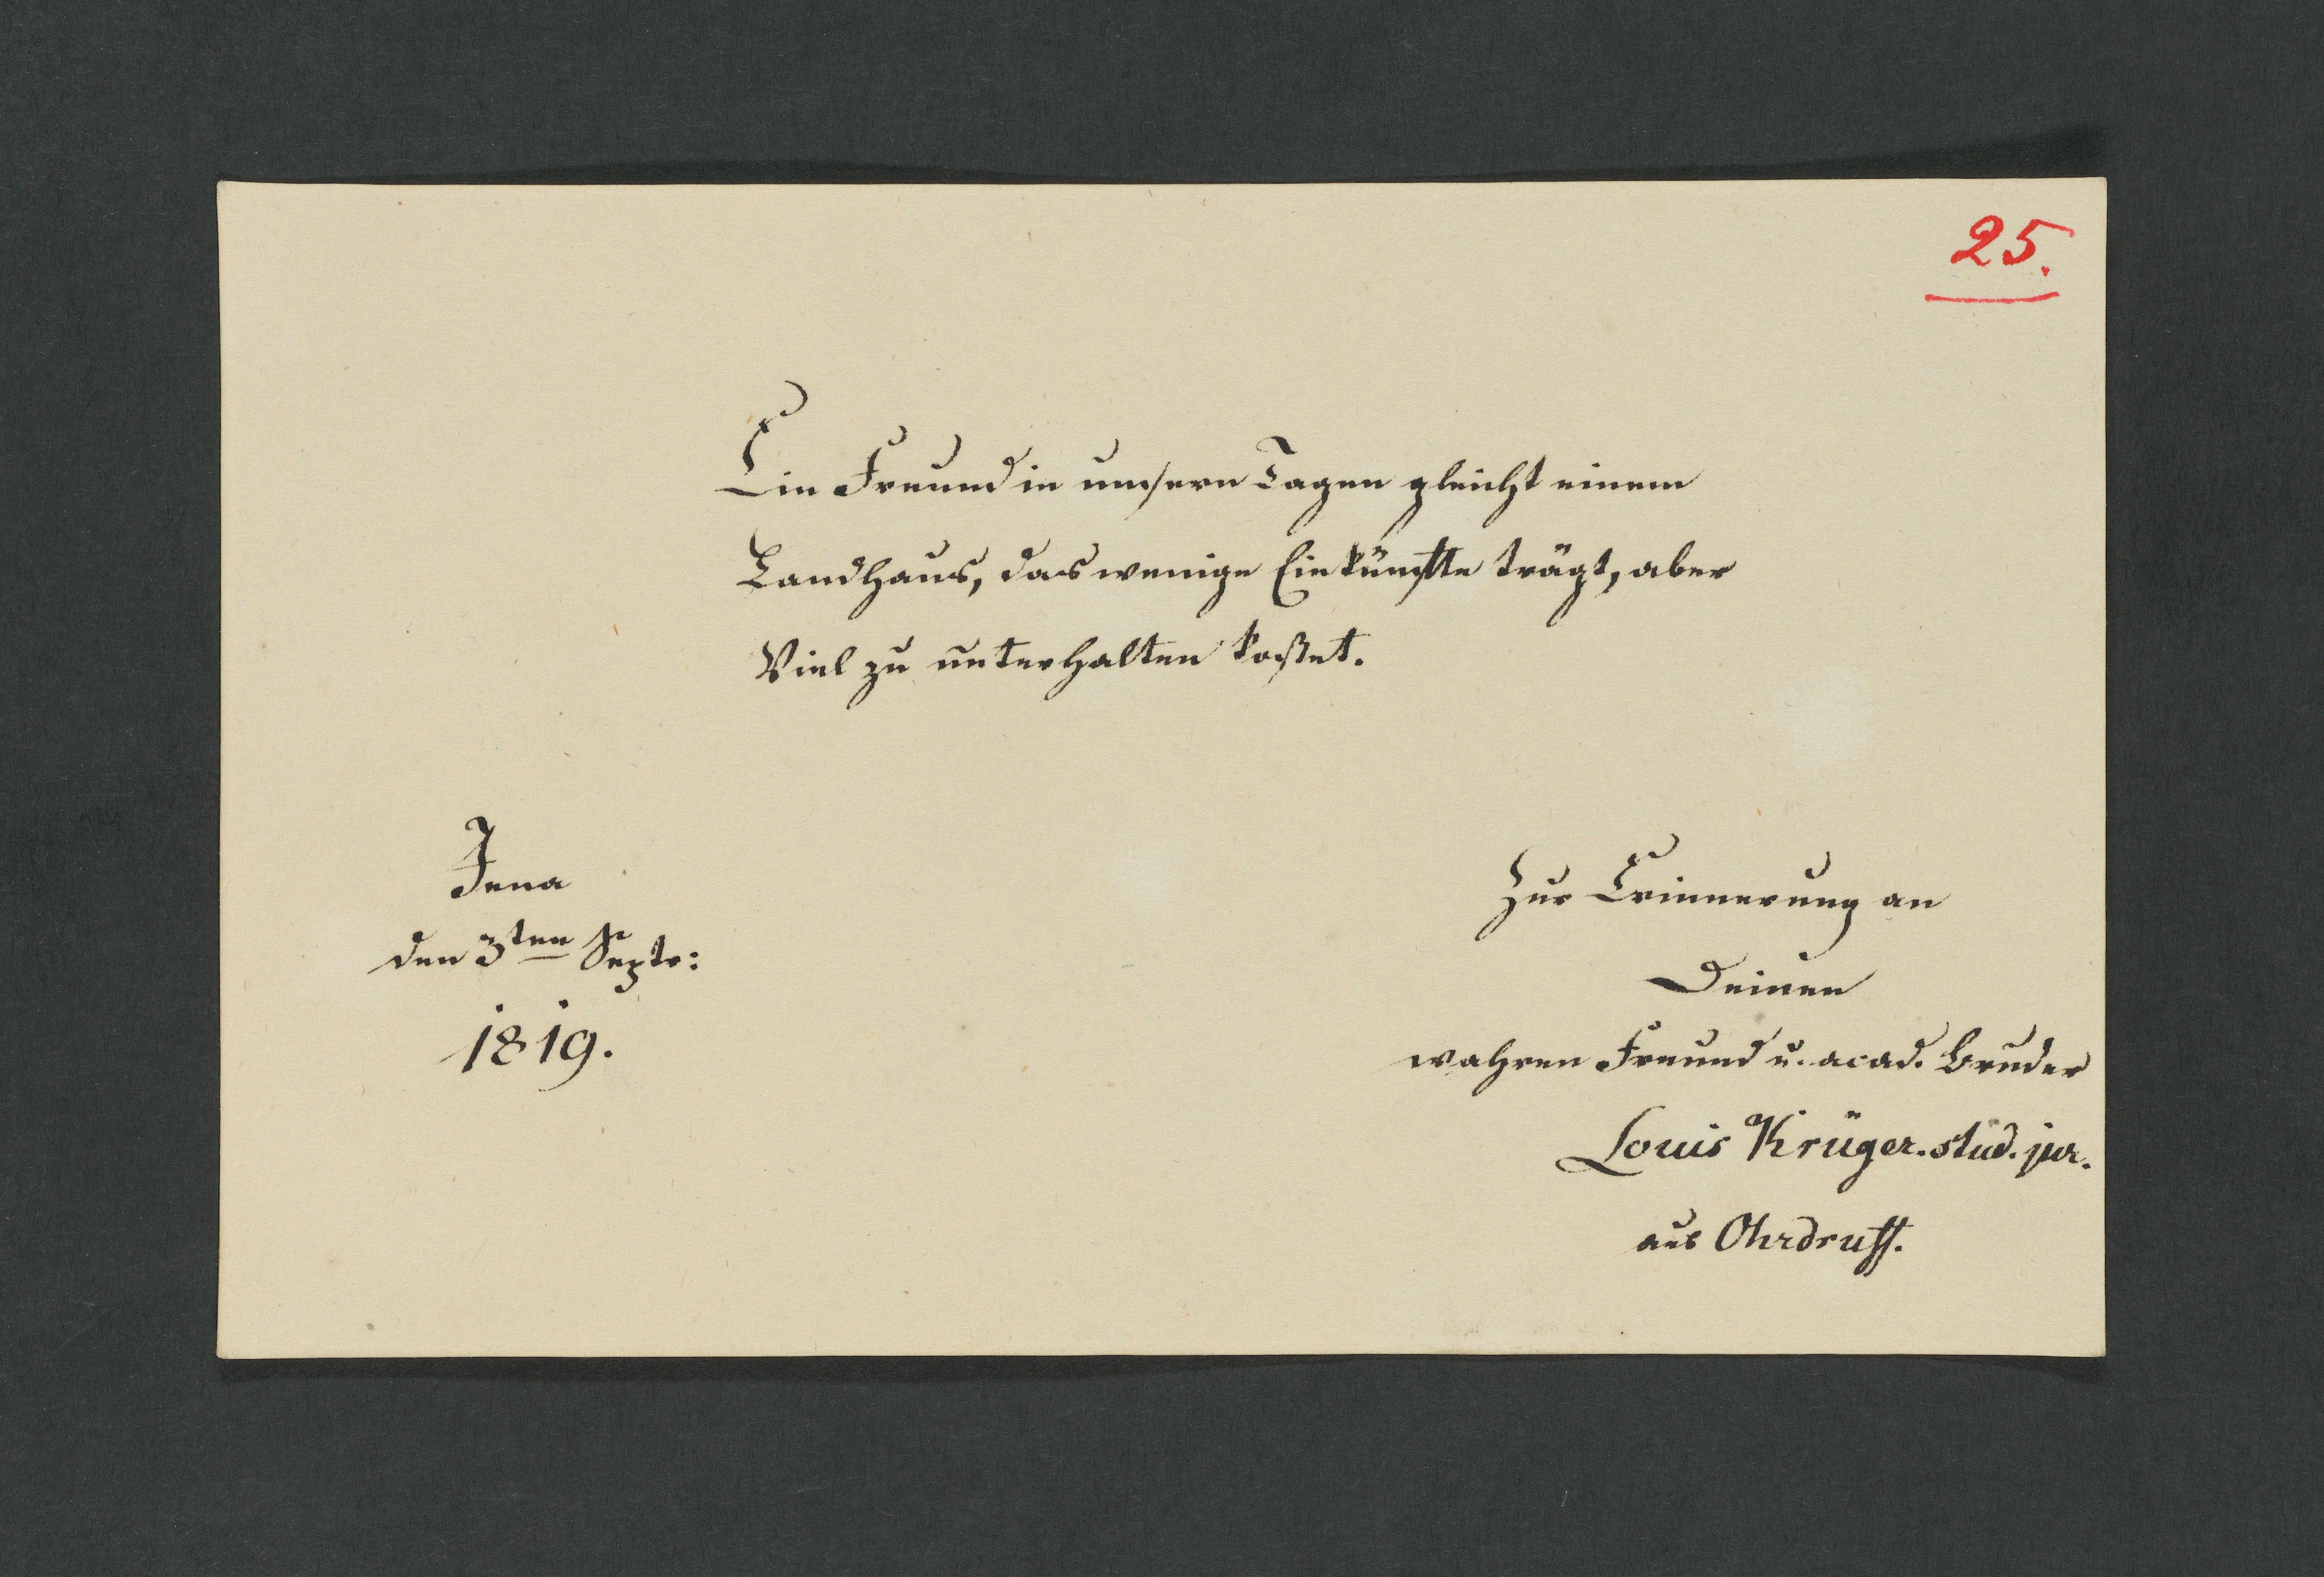 25.
Ein Freund in unsern Tagen gleicht einem
Landhaus, das wenige Einkünfte trägt, aber
Viel zu unterhalten kostet.
Jena
den 3ten Septr:
1819.
Zur Erinnerung an
Deinen
wahren Freund u. acad. Bruder
Louis Krüger. stud. jur.
aus Ohrdruff.